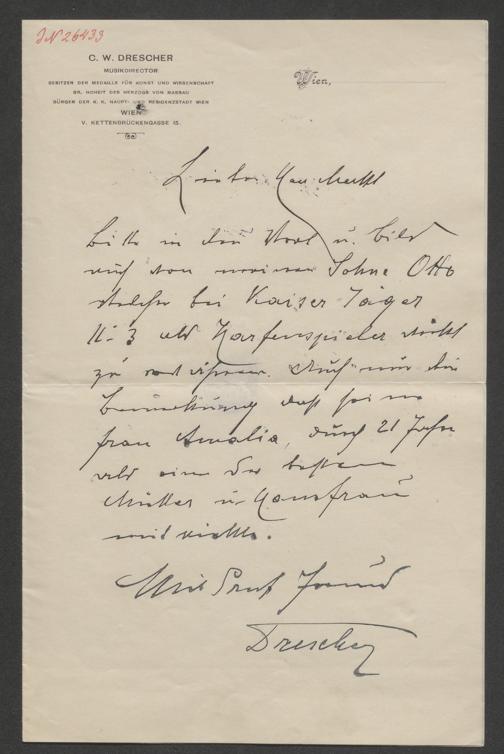 JN 26433
C. W. DRESCHER
MUSIKDIRECTOR
BESITZER DER MEDAILLE FÜR KUNST UND WISSENSCHAFT
SR. HOHEIT DES HERZOGS VON NASSAU
BÜRGER DER K. K. HAUPT- UND RESIDENZSTADT WIEN
WIEN
V. KETTENBRÜCKENGASSE 15.
Wien,
Lieber
Bitte in den u. Bild
auch von meinen Sohne Otto
welcher bei Kaiser Jäger
N: 3 als Harfenspieler wirkt
zu Auch nur die
Bemerkung daß seine
frau Amalia, durch 21 Jahre
als eine der besten
Mütter u Hausfrau
mit wirkte.
Mit Gruß Freund
Drescher